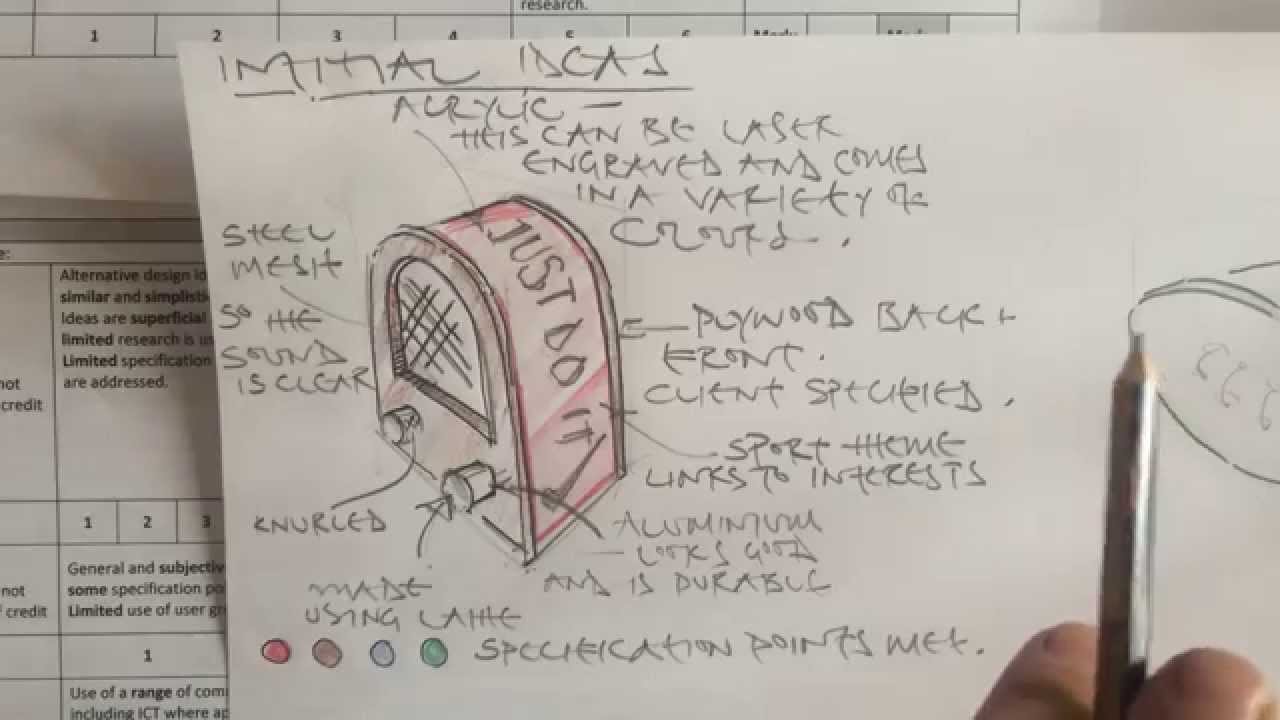 research.
1 2 3 4 5 6
INITIAL IDEAS
ACRYLIC -
THIS CAN BE LASER
ENGRAVED AND COMES
IN A VARIETY OF
COLOURS.
STEEL
MESH
SO THE
SOUND
IS CLEAR
JUST DO IT
PLYWOOD BACK +
FRONT.
CLIENT SPECIFIED.
SPORT THEME
LINKS TO INTERESTS
KNURLED
ALUMINIUM
- LOOKS GOOD
AND IS DURABLE
MADE
USING LATHE
SPECIFICATION POINTS MET.
e:
Alternative design
similar and simplistic
Ideas are superficial
limited research is
Limited specification
are addressed.
not
credit
1 2 3
General and subjective
some specification
Limited use of user
not
credit
1
Use of a range of
including ICT where